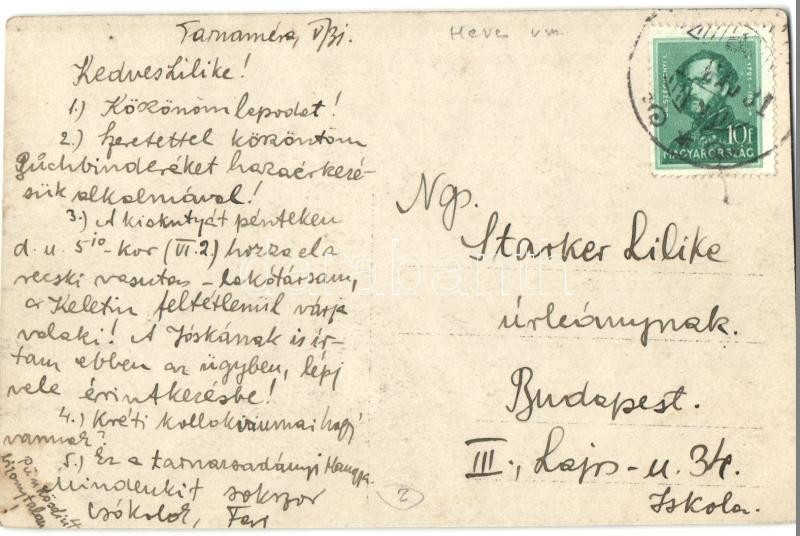 Tarnaméra, V/31.
Heves vm.
Kedves Lilike!
1.) Köszönöm lapodat!
2.) Szeretettel köszöntöm
Buchbinderéket hazaérkezé-
sük alkalmával!
3.) A kiskutyát pénteken
d. u. 5¹⁰-kor (VI.2.) hozza el a
recski vasutas - lakótársam,
a Keletin feltétlenül várja
valaki! A Jóskának is ír-
tam ebben az ügyben, lépj
vele érintkezésbe!
4.) Kréti kollokviumai hogy
vannak?
5.) Ez a tarnazsadányi Hangya.
Mindenkit sokszor
csókolok, Feri
pünkösdint
bizonytalan
SZÉCHENYI I.
10f
MAGYARORSZÁG
Ng.
Starker Lilike
úrleánynak.
Budapest.
III., Lajos-u. 34.
Iskola.
2